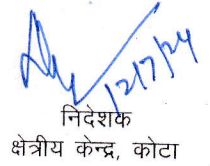 12/7/24
निदेशक
क्षेत्रीय केन्द्र, कोटा